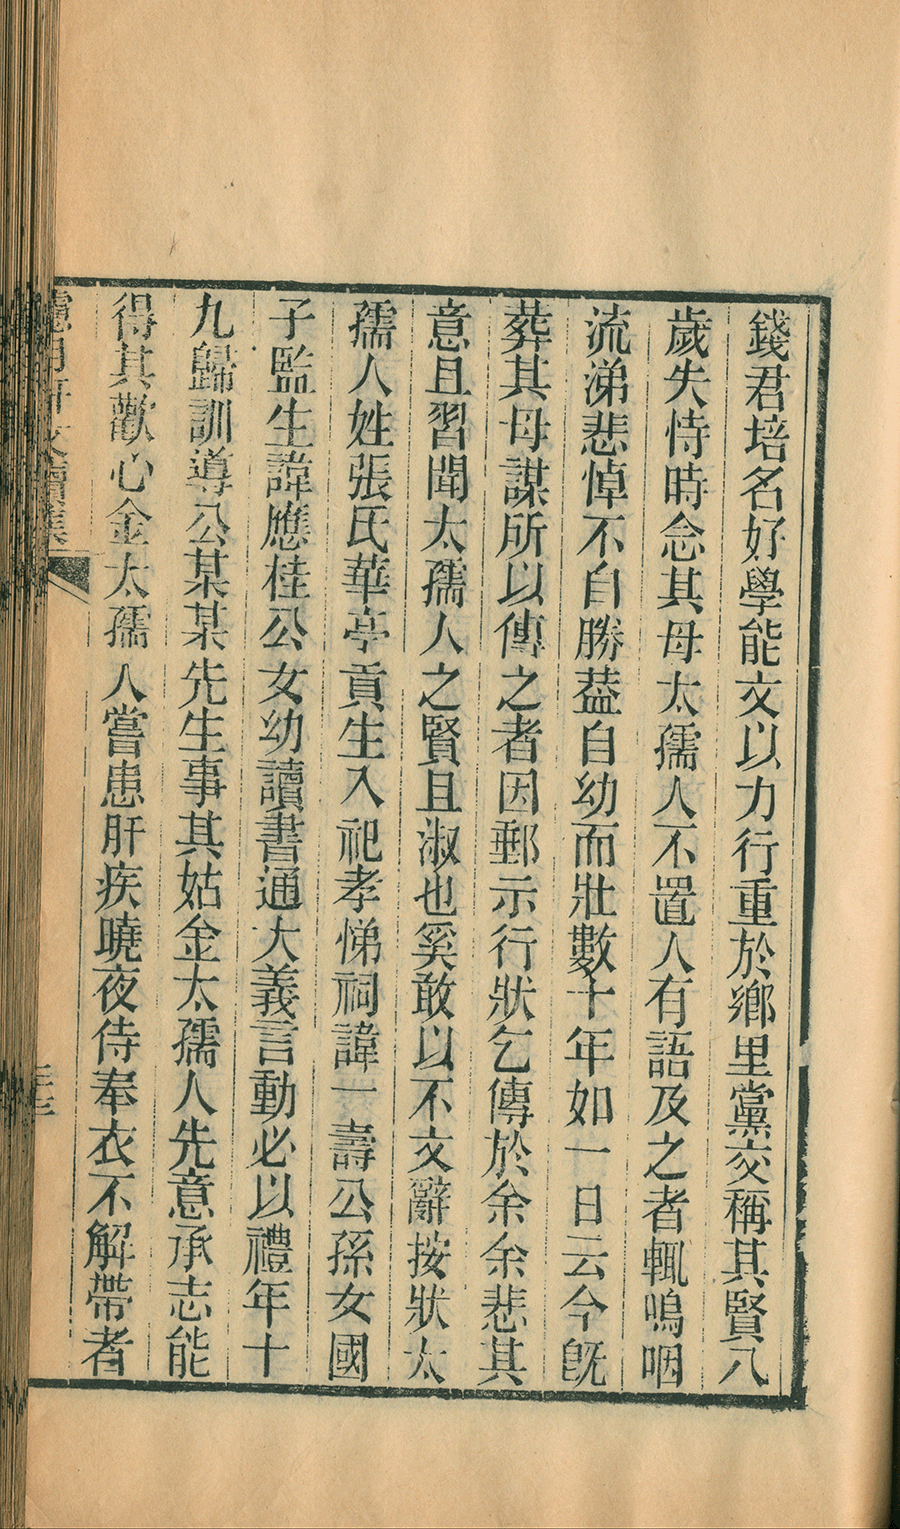 錢君培名好學能文以力行重於鄉里黨交稱其賢八
歲失恃時念其母太孺人不置人有語及之者輒嗚咽
流涕悲悼不自勝葢自幼而壯數十年如一日云今旣
葬其母謀所以傳之者因郵示行狀乞傳於余余悲其
意且習聞太孺人之賢且淑也奚敢以不文辭按狀太
孺人姓張氏華亭貢生入祀孝悌祠諱一壽公孫女國
子監生諱應桂公女幼讀書通大義言動必以禮年十
九歸訓導公某某先生事其姑金太孺人先意承志能
得其歡心金太孺人嘗患肝疾曉夜侍奉衣不解帶者